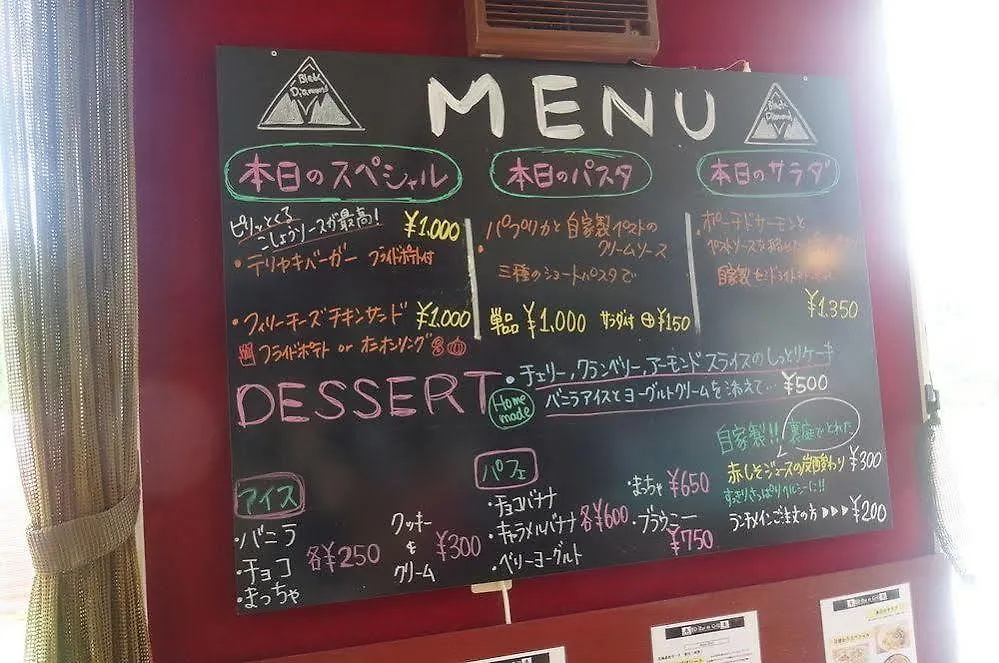 Black
Diamond
MENU
Black
Diamond
本日のスペシャル
ピリッとくる
こしょうソースが最高!
¥1,000
・テリヤキバーガー フライドポテト付
・フィリーチーズチキンサンド ¥1,000
フライドポテト or オニオンリング
本日のパスタ
・パプリカと自家製ペストの
クリームソース
三種のショートパスタで
単品 ¥1,000 サラダ付 ⊕¥150
本日のサラダ
・ポーチドサーモンと
ペストソースを
自家製セミドライトマト
¥1,350
DESSERT
Home
made
・チェリー,クランベリー,アーモンドスライスのしっとりケーキ
バニラアイスとヨーグルトクリームを添えて… ¥500
アイス
・バニラ
・チョコ
・まっちゃ
各¥250
クッキー
&
クリーム
¥300
パフェ
・チョコバナナ
・キャラメルバナナ
・ベリーヨーグルト
各¥600
・まっちゃ ¥650
・ブラウニー
¥750
自家製!! 裏庭でとれた
赤しそジュースの炭酸割り ¥300
すっきりさっぱりヘルシーに!!
ランチメインご注文の方 ▶▶▶ ¥200